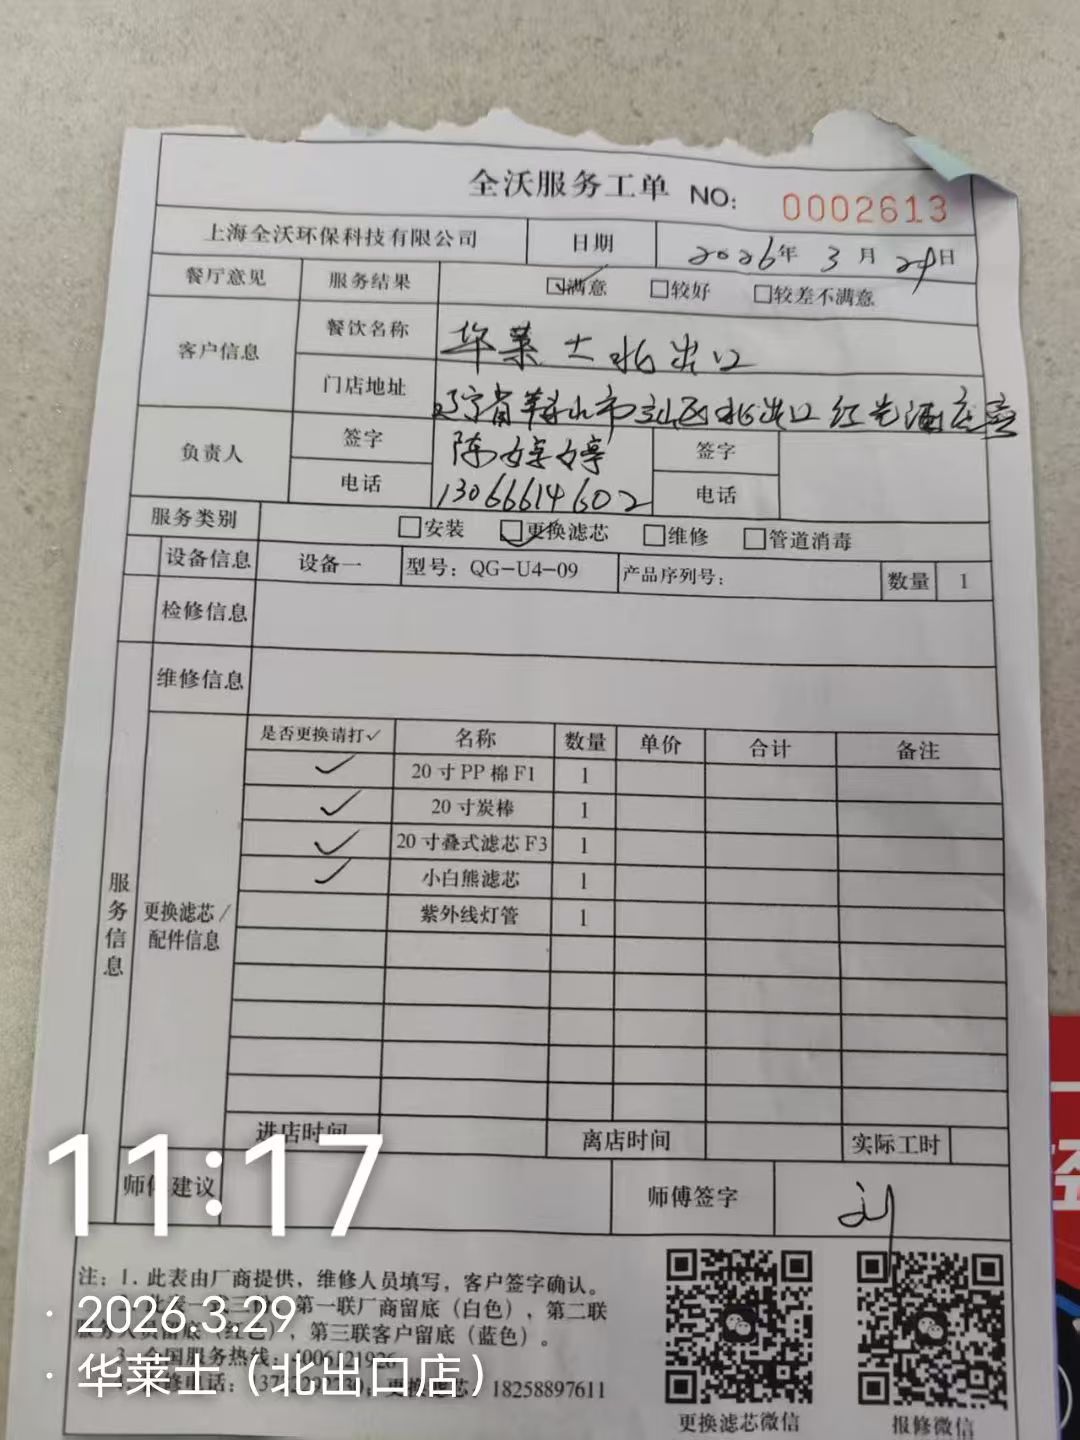 全沃服务工单 NO: 0002613
上海全沃环保科技有限公司 日期 2026年 3月 29日
餐厅意见 服务结果 ☑满意 □较好 □较差不满意
客户信息 餐饮名称 华莱士北出口
门店地址 辽宁省鞍山市 北出口红光酒店旁
负责人 签字 陈婷婷 签字
电话 13066614602 电话
服务类别 □安装 ☑更换滤芯 □维修 □管道消毒
设备信息 设备一 型号: QG-U4-09 产品序列号: 数量 1
检修信息
维修信息
服务信息
更换滤芯/配件信息
是否更换请打✓ 名称 数量 单价 合计 备注
✓ 20寸PP棉F1 1
✓ 20寸炭棒 1
✓ 20寸叠式滤芯F3 1
✓ 小白熊滤芯 1
紫外线灯管 1
进店时间 离店时间 实际工时
师傅建议 师傅签字 刘
11:17
注: 1. 此表由厂商提供, 维修人员填写, 客户签字确认。
第一联厂商留底(白色), 第二联
(红色), 第三联客户留底(蓝色)。
3. 全国服务热线:
更换滤芯: 18258897611
· 2026.3.29
· 华莱士(北出口店)
更换滤芯微信 报修微信